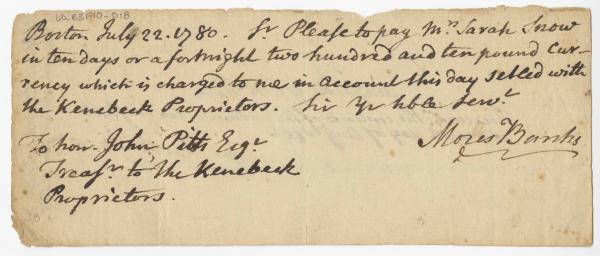 UL E31F10-D18
Boston July 22. 1780. Sr Please to pay Mrs. Sarah Snow
in ten days or a fortnight two hundred and ten pound Cur-
rency which is charged to me in account this day setled with
the Kenebeck Proprietors. Sir Yr hble Servt.
To honr. John Pitts Esqr.
Moses Banks
Treasr. to the Kenebeck
Proprietors.